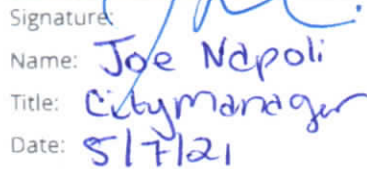 Signature:
Name: Joe Napoli
Title: City Manager
Date: 5/7/21